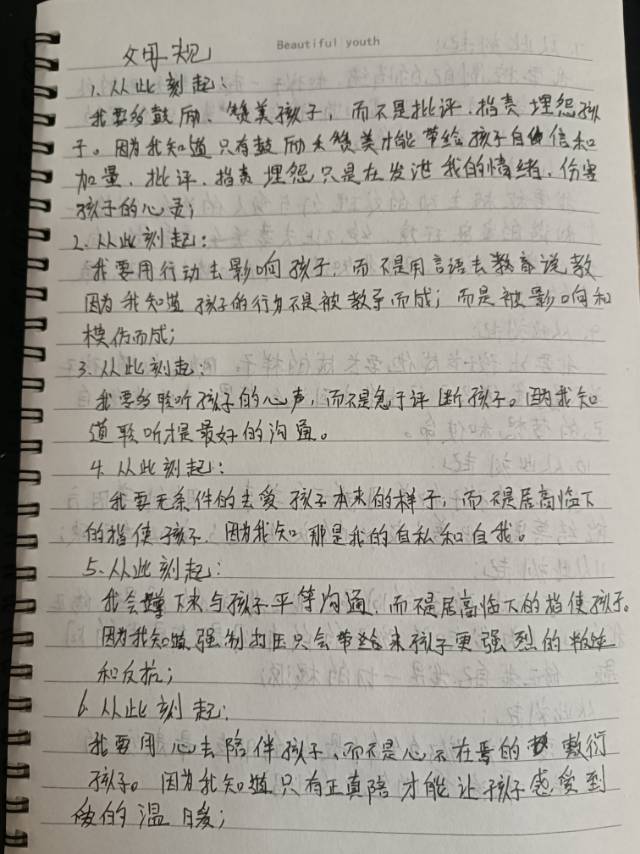 Beautiful youth
父母规
1、从此刻起：
我要多鼓励、赞美孩子，而不是批评、指责 埋怨孩
子。因为我知道 只有鼓励和赞美才能 带给 孩子自信和
加量、批评、指责 埋怨 只是在发泄 我的情绪、伤害
孩子的心灵；
2、从此刻起：
我要用行动去影响 孩子，而不是用言语去教育说教
因为我知道 孩子的行为不是被教导而成；而是被影响和
模仿而成；
3、从此刻起：
我要多聆听孩子的心声，而不是急于评断孩子。因为我知
道聆听才是最好的沟通。
4、从此刻起：
我要无条件的去爱 孩子本来的样子，而不是居高临下
的指使 孩子、因为我知 那是我的自私和自我。
5、从此刻起：
我会蹲下来与孩子平等沟通、而不是居高临下的指使孩子。
因为我知道 强制打压只会带给来孩子更强烈的叛逆
和反抗；
6、从此刻起：
我要用心去陪伴孩子、而不是心不在焉的 敷衍
孩子。因为我知道 只有正真陪 才能让孩子感受到
的温暖；